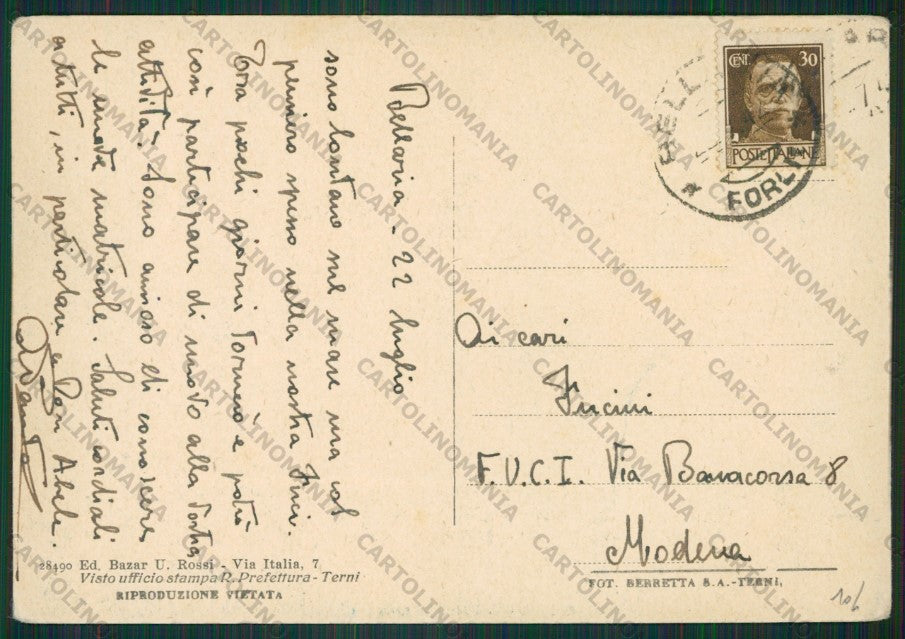 Bellaria - 22 luglio
sono lontano sul mare ma col
pensiero spesso nella nostra Fuci.
Tra pochi giorni tornerò e potrò
così participare di nuovo alla vostra
attività. Sono ansioso di conoscere
le nuove matricole. Saluti cordiali
a tutti, in particolare a Don Abele.
CENT. 30
POSTE ITALIANE
FORLI
Ai cari
Fucini
F.U.C.I. Via Bonacorsa 8
Modena
28490 Ed. Bazar U. Rossi - Via Italia, 7
Visto ufficio stampa R. Prefettura - Terni
RIPRODUZIONE VIETATA
FOT. BERRETTA S.A.-TERNI,
106
CARTOLINOMANIA